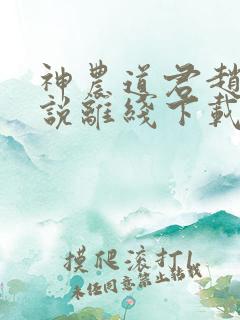 神農道君趙
說離綫下載
摸爬滾打l
未经同意禁止轉載